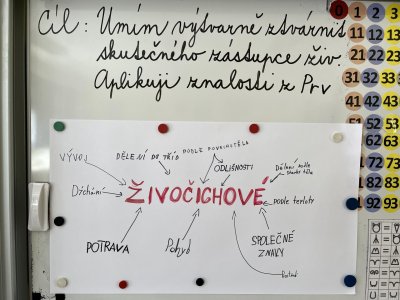 Cíl: Umím výtvarně ztvárnit
skutečného zástupce živ.
Aplikuji znalosti z Prv
0 1 2 3
11 12 13
21 22 23
31 32 33
41 42 43
51 52 53
62 63
72 73
82 83
92 93
VÝVOJ
DĚLENÍ DO TŘÍD
PODLE POVRCHU TĚLA
ODLIŠNOSTI
Dělení podle
stavby těla
Dýchání
ŽIVOČICHOVÉ
podle teploty
POTRAVA
Pohyb
SPOLEČNÉ
ZNAVY